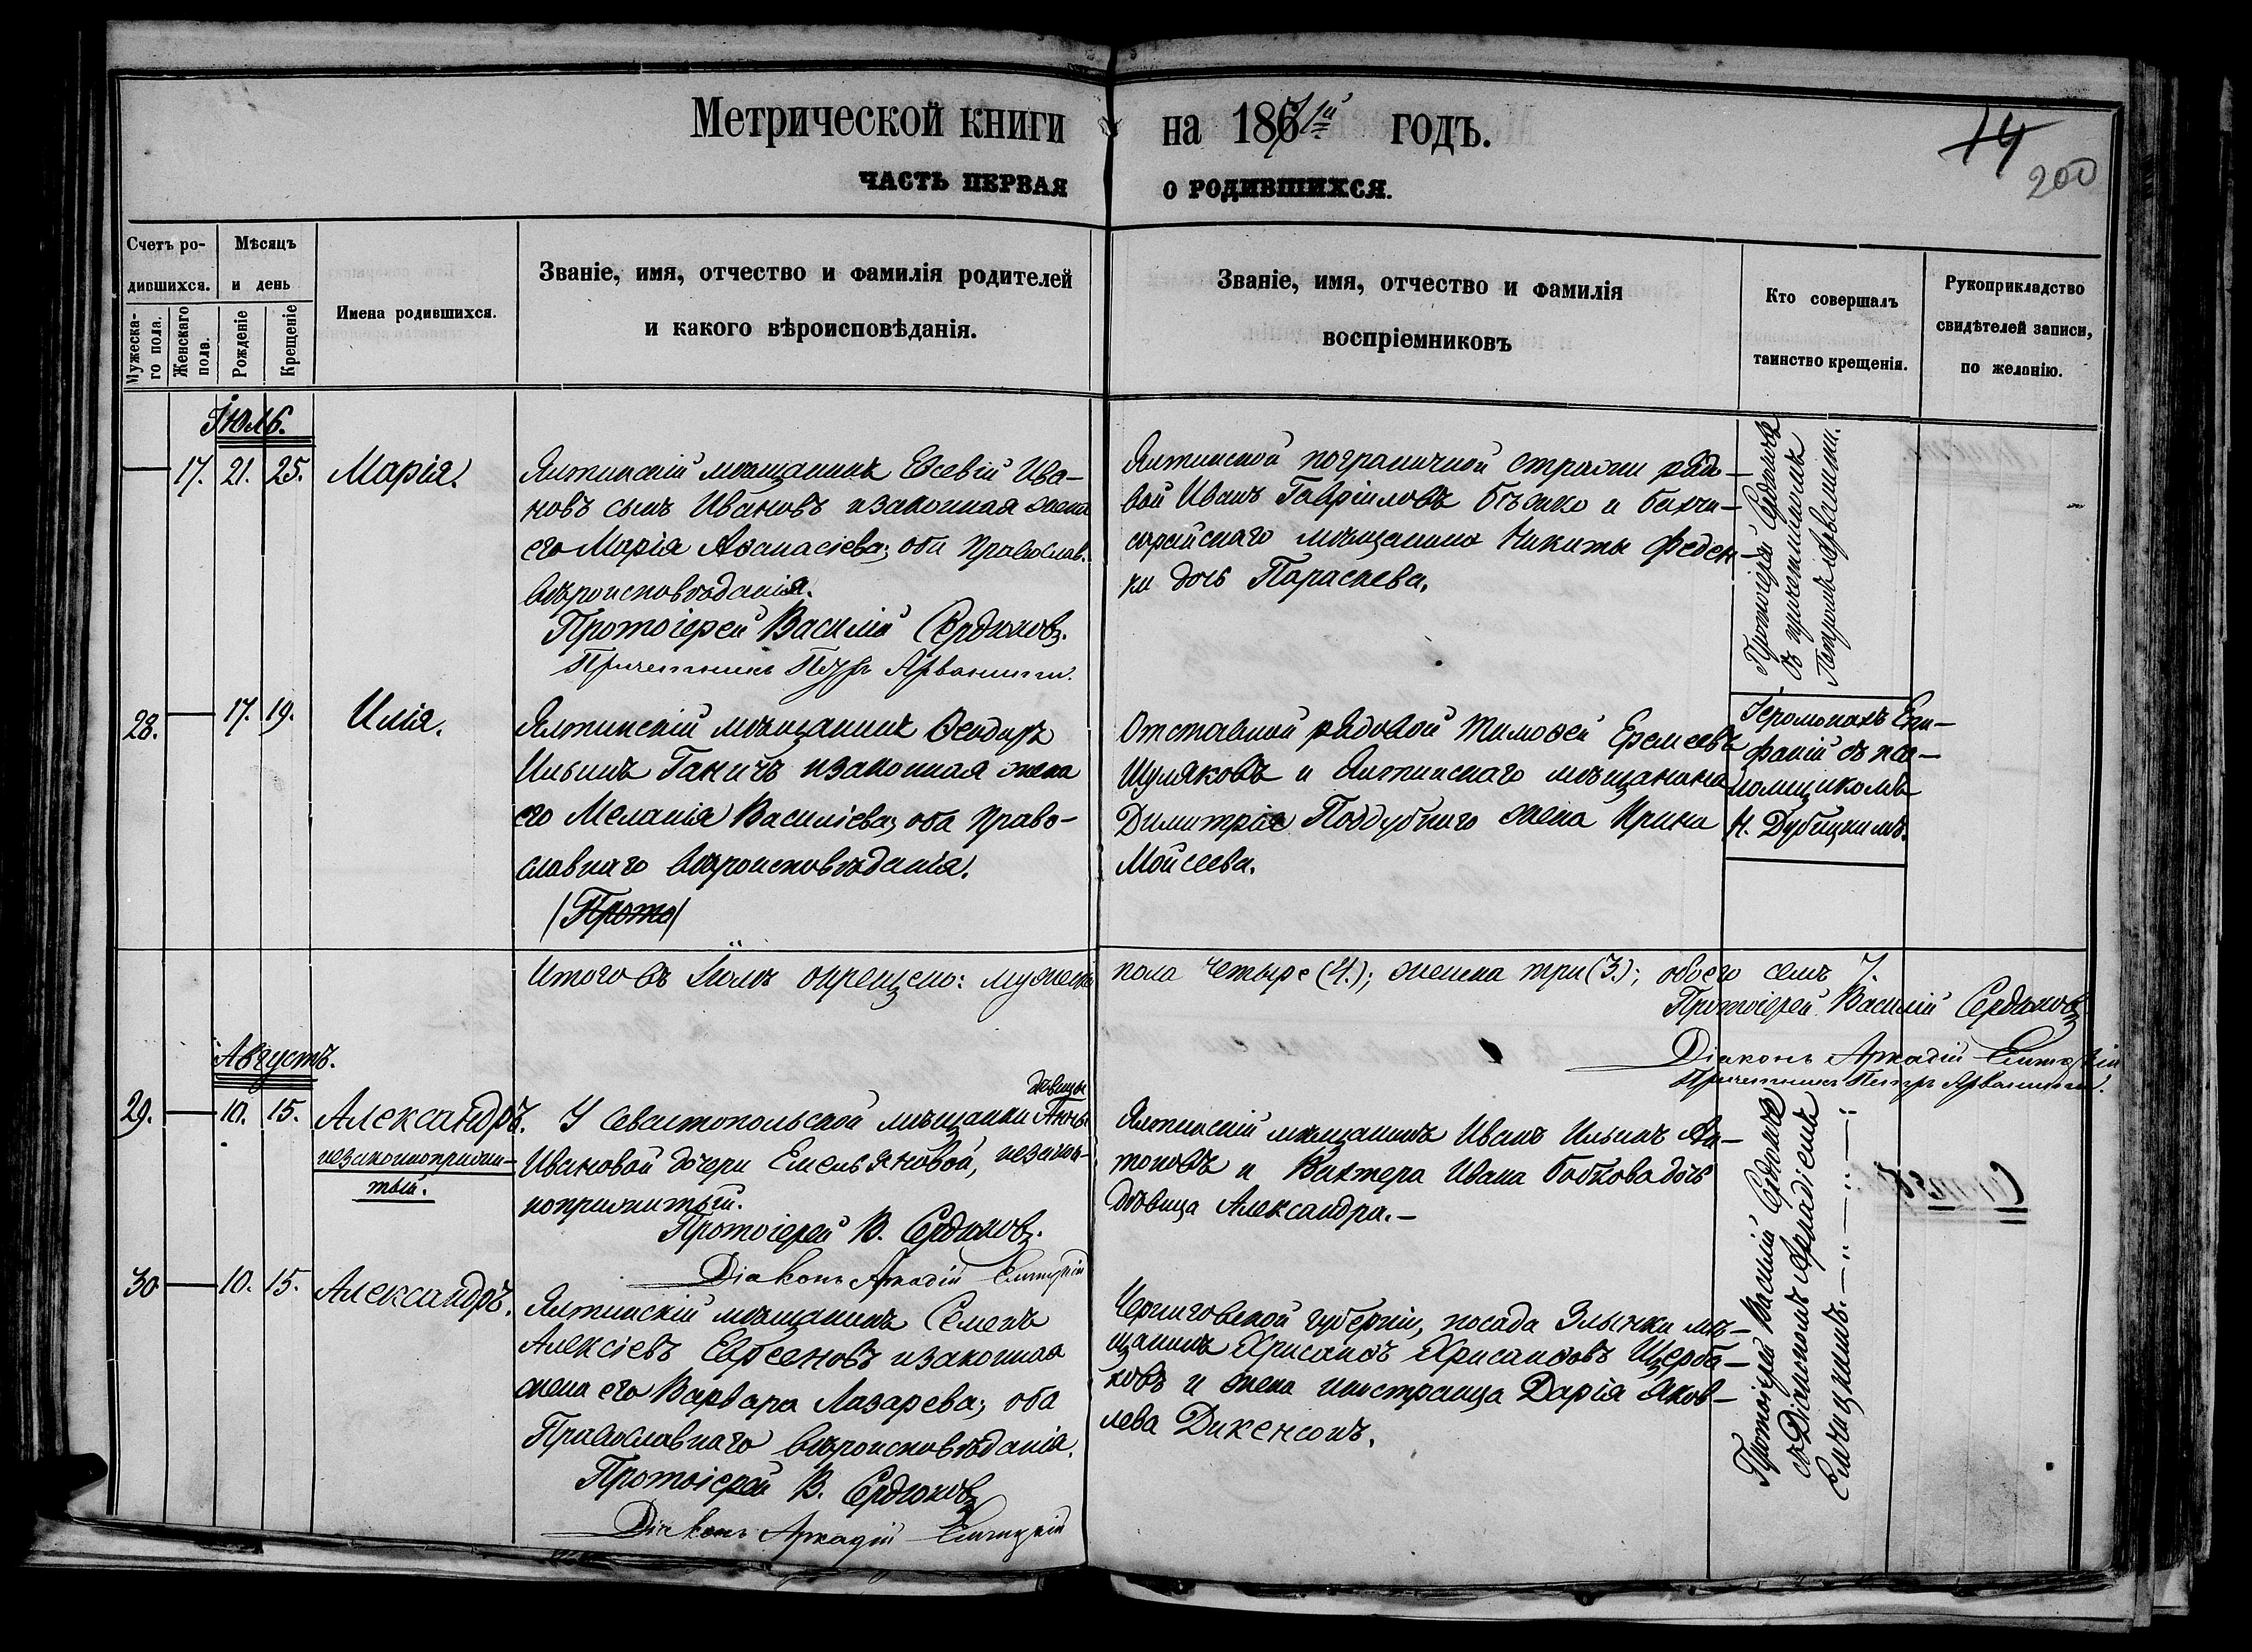 Метрической книги на 1871й годъ.
74
200
ЧАСТЬ ПЕРВАЯ О РОДИВШИХСЯ.
Счетъ ро-
дившихся.
Мужеска-
го пола.
Женскаго
пола.
Мѣсяцъ
и день
Рожденіе
Крещеніе
Имена родившихся.
Званіе, имя, отчество и фамилія родителей
и какого вѣроисповѣданія.
Званіе, имя, отчество и фамилія
воспріемниковъ
Кто совершалъ
таинство крещенія.
Рукоприкладство
свидѣтелей записи,
по желанію.
Іюль.
17. 21. 25. Марія.
Ялтинскій мѣщанинъ Евсевій Ива-
новъ сынъ Ивановъ и законная жена
его Марія Аѳанасіева; оба православ.
вѣроисповѣданія.
Протоіерей Василій Сердюковъ.
Причетникъ Петръ Арванити.
Ялтинской пограничной стражи рядо-
вой Иванъ Гавріиловъ Бѣжко и бахчи-
сарайскаго мѣщанина Никиты Феден-
ки дочь Параскева.
Протоіерей Сердюковъ
съ причетникомъ
Петромъ Арванити.
28. 17. 19. Илія.
Ялтинскій мѣщанинъ Ѳеодоръ
Ильинъ Ганичъ и законная жена
его Меланія Василіева; оба право-
славнаго вѣроисповѣданія.
(Прото)
Отставной рядовой Тимоѳей Еремеевъ
Шуляковъ и Ялтинскаго мѣщанина
Димитрія Поддубнаго жена Ирина
Мойсеева.
Іеромонахъ Епи-
фаній съ пса-
ломщикомъ
Н. Дубицкимъ.
Итого въ Іюлѣ окрещено: мужеска пола четыре (4.); женска три (3.); обоего семь 7.
Протоіерей Василій Сердюковъ
Діаконъ Аркадій
Причетникъ Петръ Арванити.
Августъ.
29. 10. 15. Александръ.
незаконноприжи-
тый.
У Севастопольской мѣщанки дѣвицы Анны
Ивановой дочери Емельяновой, незакон-
ноприжитый.
Протоіерей В. Сердюковъ.
Діаконъ Аркадій
Ялтинскій мѣщанинъ Иванъ Ильинъ Ан-
тоновъ и Вахтера Ивана Бобкова дочь
дѣвица Александра.-
30 10. 15. Александръ.
Ялтинскій мѣщанинъ Семенъ
Алексіевъ Евсеновъ и законная
жена его Варвара Лазарева; оба
Православнаго вѣроисповѣданія.
Протоіерей В. Сердюковъ
Діаконъ Аркадій
Черниговской губерніи, посада Злынки мѣ-
щанинъ Хрисанѳъ Хрисанѳовъ Щерба-
ковъ и жена иностранца Дарія Яков-
лева Дикенсонъ.
Протоіерей Василій Сердюковъ
съ Діакономъ Аркадіемъ